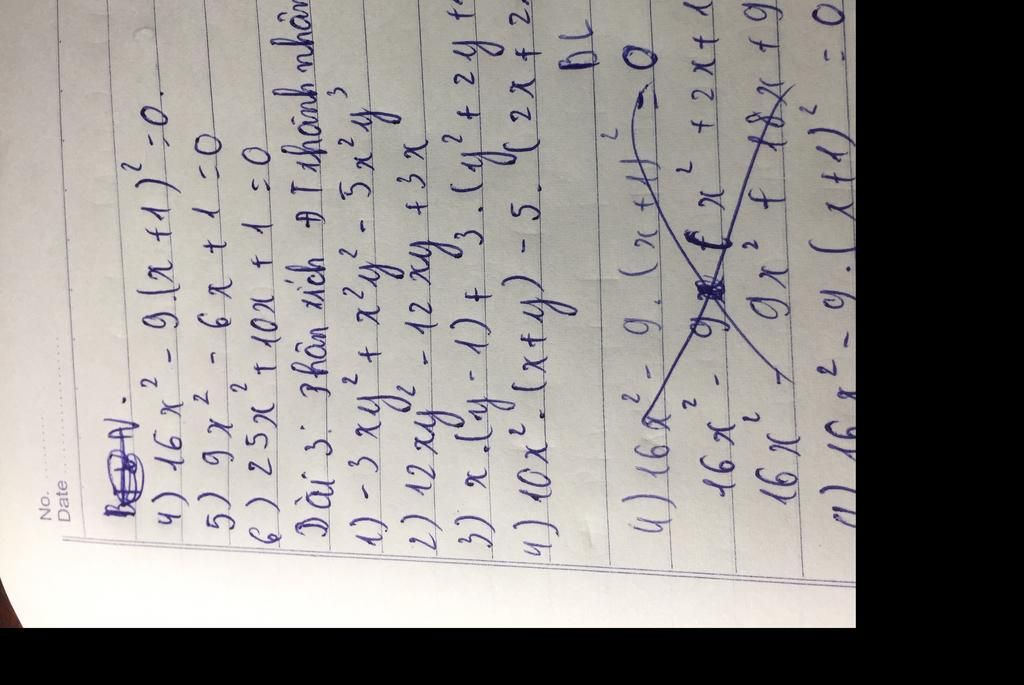 No.
Date
4) 16x² - 9.(x+1)² = 0.
5) 9x² - 6x + 1 = 0
6) 25x² + 10x + 1 = 0
Bài 3: Phân tích ĐT thành nhân
1) -3xy² + x²y² - 5x²y³
2) 12xy² - 12xy + 3x
3) x.(y-1) + 3.(y² + 2y +
4) 10x².(x+y) - 5.(2x + 2
BL
4) 16x² - 9.(x+1)² = 0
16x² - 9 x² + 2x + 1
16x² - 9x² + 18x + 9
4) 16x² - 9.(x+1)² = 0